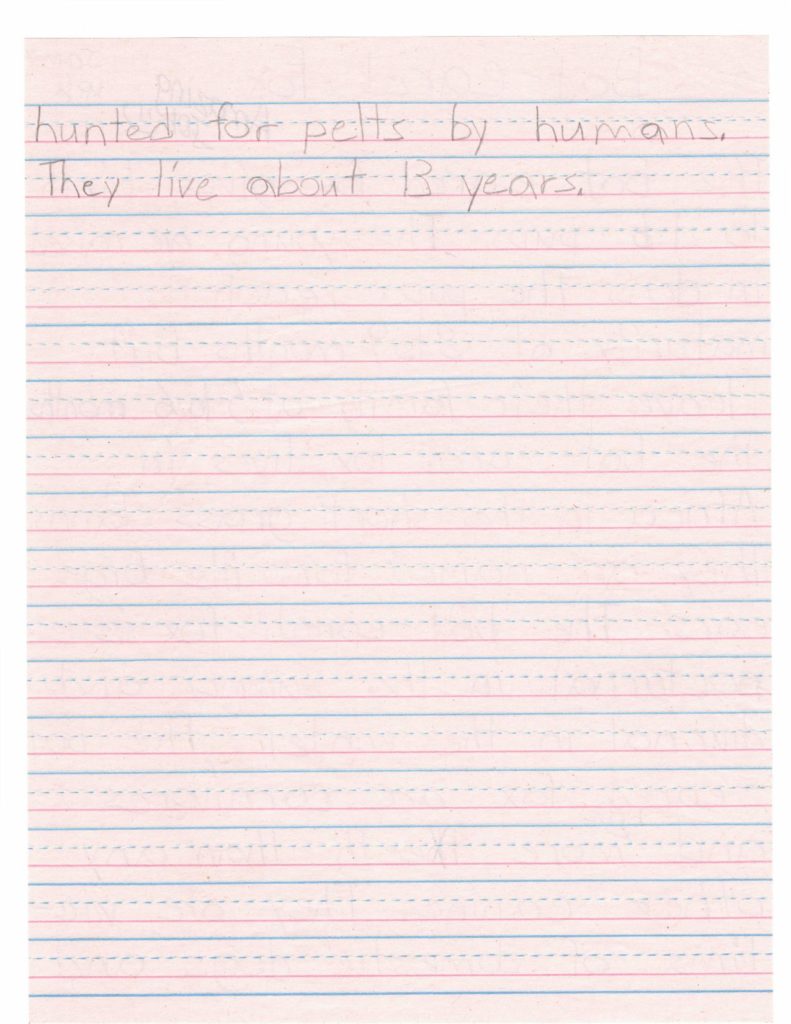 hunted for pelts by humans.
They live about 13 years.